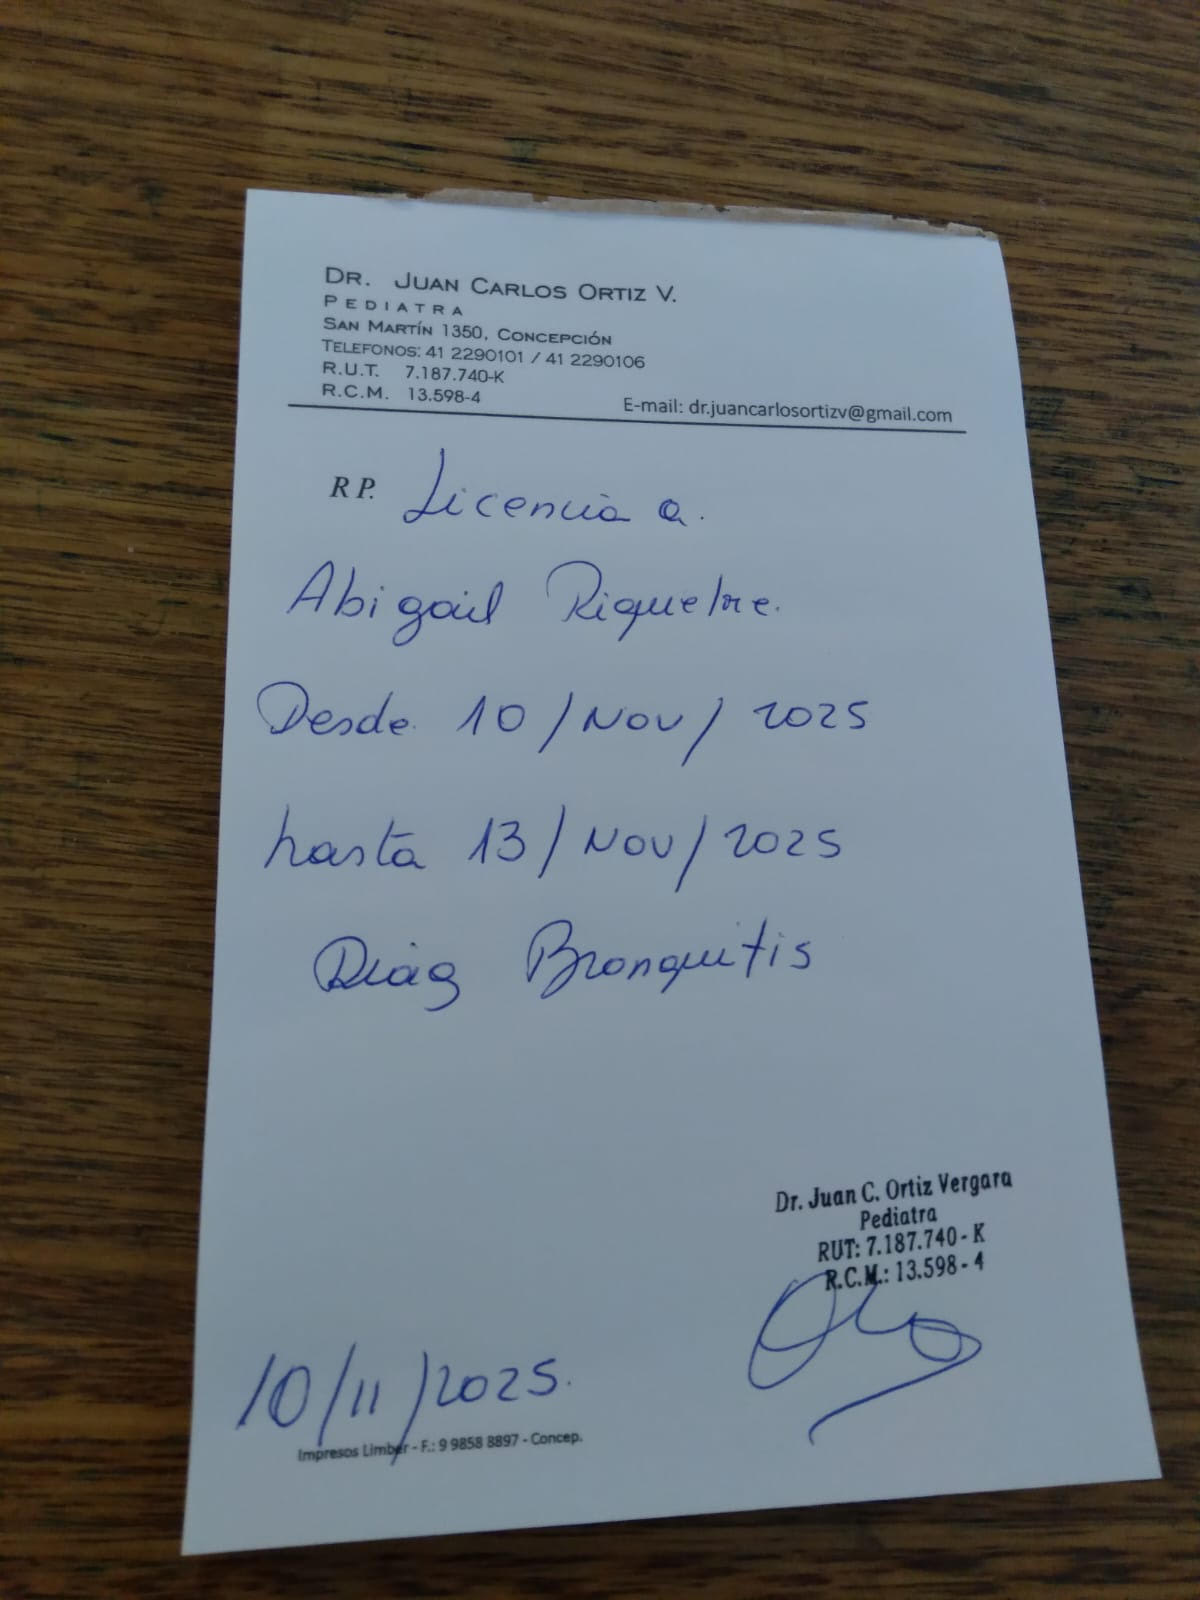 DR. JUAN CARLOS ORTIZ V.
PEDIATRA
SAN MARTÍN 1350, CONCEPCIÓN
TELEFONOS: 41 2290101 / 41 2290106
R.U.T. 7.187.740-K
R.C.M. 13.598-4
E-mail: dr.juancarlosortizv@gmail.com
RP. Licencia a.
Abigail Riquelme.
Desde 10/NOV/2025
hasta 13/NOV/2025
Diag Bronquitis
Dr. Juan C. Ortiz Vergara
Pediatra
RUT: 7.187.740-K
R.C.M.: 13.598-4
10/11/2025.
Impresos Limber - F.: 9 9858 8897 - Concep.